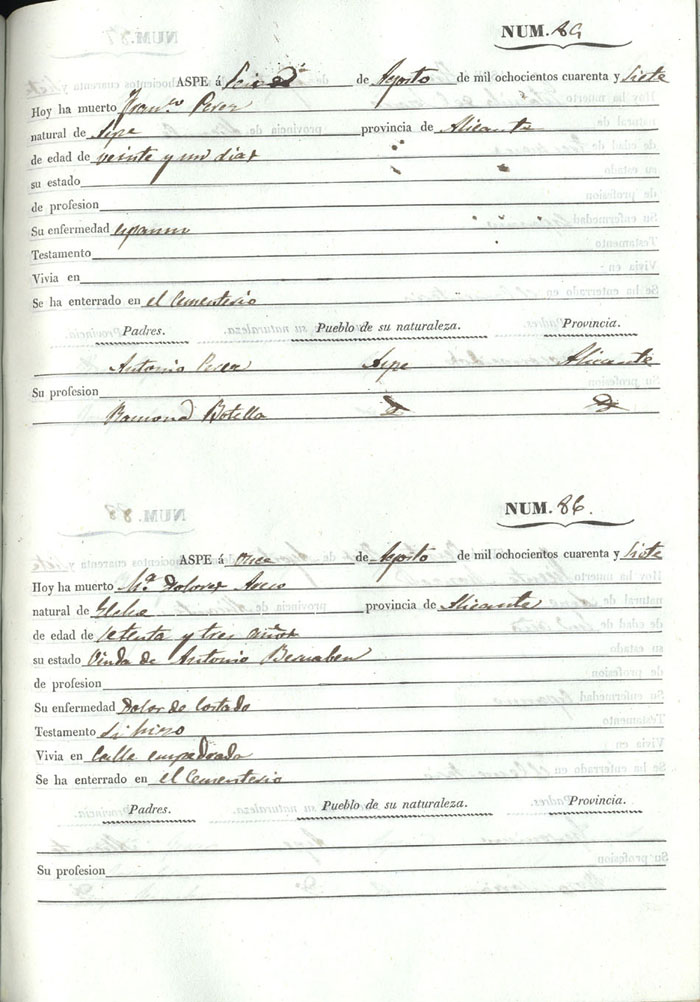 NUM. 85
ASPE á Seis de Agosto de mil ochocientos cuarenta y Siete
Hoy ha muerto Franco Perez
natural de Aspe provincia de Alicante
de edad de veinte y un dias
su estado
de profesion
Su enfermedad espasmo
Testamento
Vivia en
Se ha enterrado en el Cementerio
Padres. Pueblo de su naturaleza. Provincia.
Antonio Perez Aspe Alicante
Su profesion
Ramona Botella
NUM. 86.
ASPE á Once de Agosto de mil ochocientos cuarenta y Siete
Hoy ha muerto Ma Dolores
natural de Elche provincia de Alicante
de edad de setenta y tres años
su estado Viuda de Antonio Bernabeu
de profesion
Su enfermedad Dolor de Costado
Testamento Si hizo
Vivia en Calle empedrada
Se ha enterrado en el Cementerio
Padres. Pueblo de su naturaleza. Provincia.
Su profesion